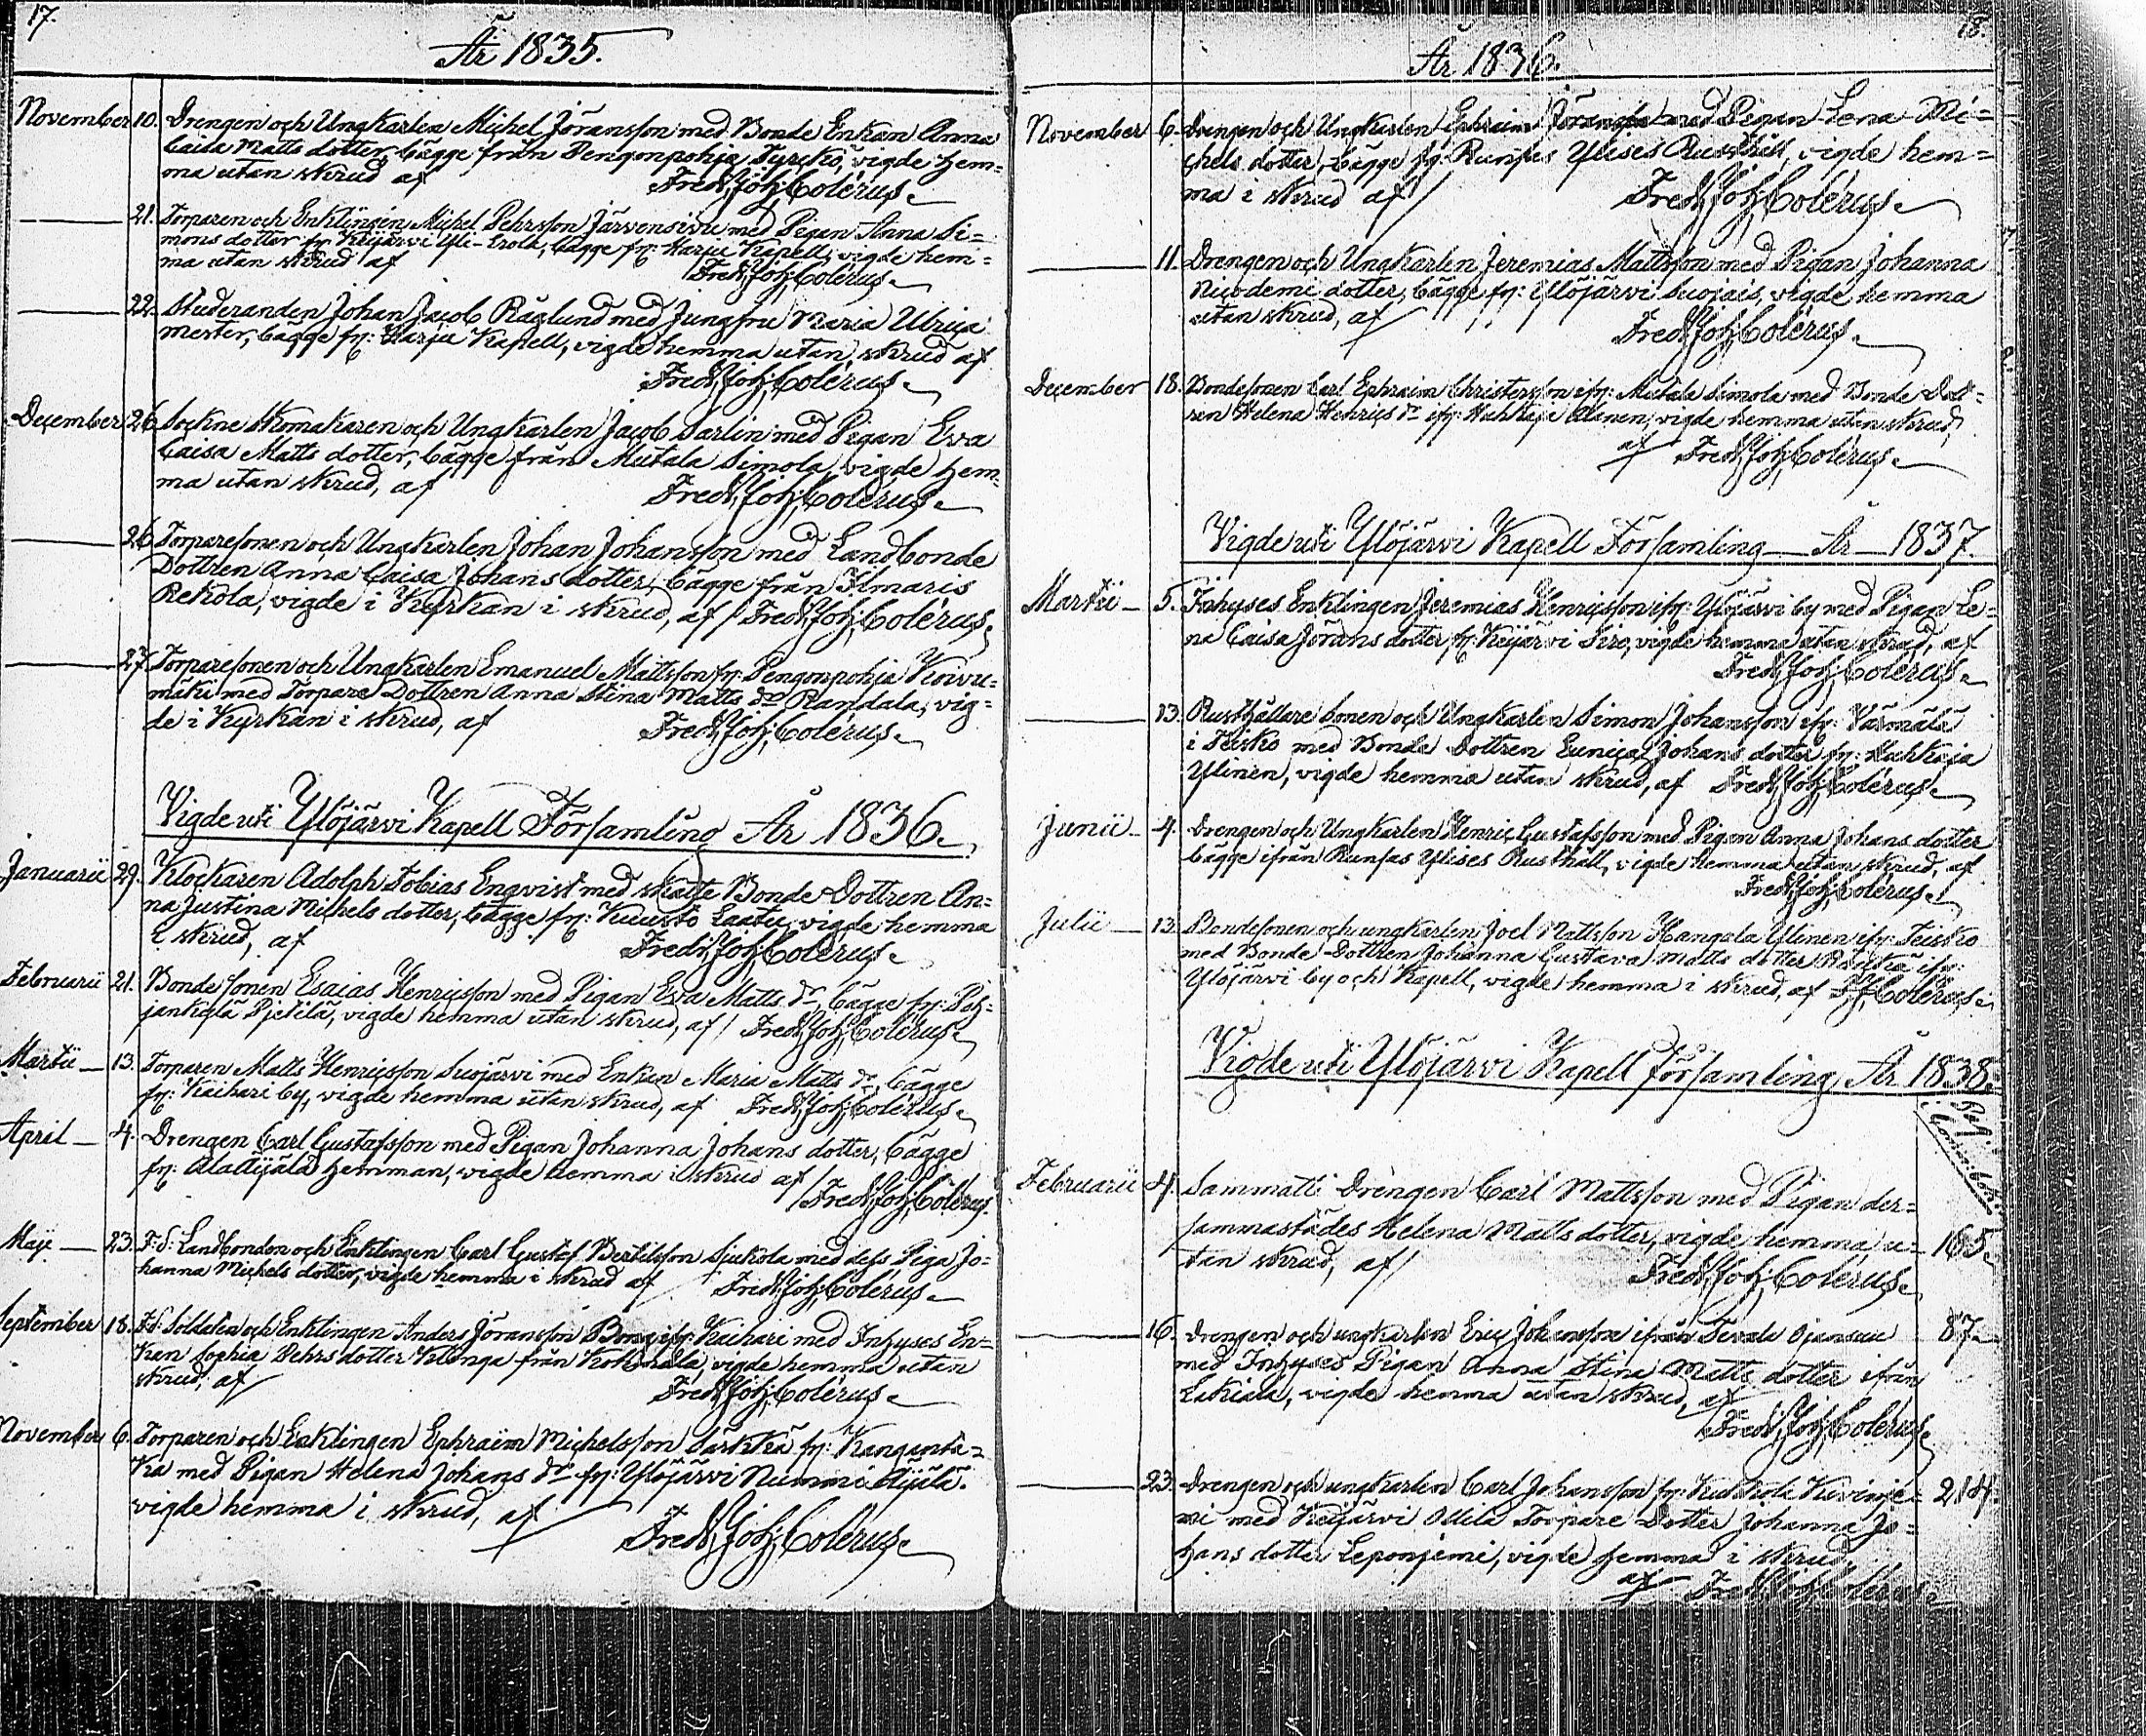 17.
År 1835.
November 10. Drengen och Ungkarlen Michel Jöransson med Bonde Enkan Anna
Caisa Matts dotter, bägge från Pengonpohja Tyrckö, vigde hem=
ma utan skrud af Fredr: Joh: Colérus.
21. Torparen och Enklingen Michel Pehrsson Järvensivu med Pigan Anna Si=
mons dotter fr: Keijärvi Yli-Erola, bägge fr: Harju Kapell, vigde hem=
ma utan skrud af Fredr: Joh: Colérus.
22. Studeranden Johan Jacob Råglund med Jungfru Maria Ulrica
mester, bägge fr: Harju Kapell, vigde hemma utan skrud af
Fredr: Joh: Colérus.
December 26. Sockne Skomakaren och Ungkarlen Jacob Sarlin med Pigan Eva
Caisa Matts dotter, bägge från Mutala Simola, vigde hem=
ma utan skrud, af Fredr: Joh: Colérus.
26. Torparesonen och Ungkarlen Johan Johansson med Landbonde
Dottren Anna Caisa Johans dotter, bägge från Ilmaris
Rekola, vigde i Kyrkan i skrud, af Fredr: Joh: Colérus.
27. Torparesonen och Ungkarlen Emanuel Mattsson fr: Pengonpohja Koivu=
mäki med Torpare Dottren Anna Stina Matts dr Randala, vig=
de i Kyrkan i skrud, af Fredr: Joh: Colérus.
Vigde uti Ylöjärvi Kapell Församling År 1836.
Januarii 29. Klockaren Adolph Tobias Enqvist med skatte Bonde Dottren An=
na Justina Michels dotter, bägge fr: Kuusto Laatu, vigde hemma
i skrud, af Fredr: Joh: Colérus.
Februarii 21. Bonde sonen Esaias Henricsson med Pigan Eva Matts dr, bägge fr: Poh=
jankylä Pjetilä, vigde hemma utan skrud, af Fredr: Joh: Colérus.
Martii 13. Torparen Matts Henricsson Suojärvi med Enkan Maria Matts dr, bägge
fr: Kaihari by, vigde hemma utan skrud, af Fredr: Joh: Colérus.
April 4. Drengen Carl Gustafsson med Pigan Johanna Johans dotter, bägge
fr: Ala Äijälä Hemman, vigde hemma i skrud af
Fredr: Joh: Colérus.
Maji 23. F: d: Landbonden och Enklingen Carl Gustaf Bertilsson Sjukola med dess Piga Jo=
hanna Michels dotter, vigde hemma i skrud af Fredr: Joh: Colérus.
September 18. F: d: Soldaten och Enklingen Anders Jöransson ifr: Kaihari med Inhyses En=
kan Sophia Pehrs dotter Klinga från vigde hemma utan
skrud, af Fredr: Joh: Colérus.
November 6. Torparen och Enklingen Ephraim Michelsson Särkkä fr: Kanganta=
ka med Pigan Helena Johans dr fr: Ylöjärvi Nummi Äijälä.
vigde hemma i skrud, af Fredr: Joh: Colérus.
18.
År 1836.
November 6. Drengen och Ungkarlen Ephraim Jöransson med Pigan Lena Mi=
chels dotter, bägge fr: Runsas Ylises Rusthåll, vigde hem=
ma i skrud af Fredr: Joh: Colérus.
11. Drengen och Ungkarlen Jeremias Mattsson med Pigan Johanna
Nicodemi dotter, bägge fr: Ylöjärvi vigde hemma
utan skrud, af Fredr: Joh: Colérus.
December 18. Bondesonen Carl Ephraim Christersson ifr: Mutala Simola med Bonde Dot=
ren Helena Henrics dr ifr: Alanen, vigde hemma utan skrud,
af Fredr: Joh: Colérus.
Vigde uti Ylöjärvi Kapell Församling År 1837.
Martii 5. Inhyses Enklingen Jeremias Henricsson ifr: Ylöjärvi by med Pigan Le=
na Caisa Jörans dotter fr: Keijärvi Siro, vigde hemma utan skrud, af
Fredr: Joh: Colérus.
13. Rusthållare sonen och Ungkarlen Simon Johansson ifr: Värmälä
i Teisko med Bonde Dottren Eunica Johans dotter fr:
Ylinen, vigde hemma utan skrud, af Fredr: Joh: Colérus.
Junii 4. Drengen och Ungkarlen Henric Gustafsson med Pigan Anna Johans dotter
bägge ifrån Runsas Ylises Rusthåll, vigde hemma utan skrud, af
Fredr: Joh: Colérus.
Julii 13. Bondesonen och ungkarlen Joel Mattsson Hangala Ylinen ifr: Teisko
med Bonde Dottren Johanna Gustava Matts dotter ifr:
Ylöjärvi by och Kapell, vigde hemma i skrud, af F: J: Colérus.
Vigde uti Ylöjärvi Kapell Församling År 1838.
Februarii 4. Sammatti Drengen Carl Mattsson med Pigan der=
sammastädes Helena Matts dotter, vigde hemma u= 165.
tan skrud, af Fredr: Joh: Colérus.
16. Drengen och ungkarlen Eric Johansson ifrån 87.
med Inhyses Pigan Anna Stina Matts dotter ifrån
Lakiala, vigde hemma utan skrud, af
Fredr: Joh: Colérus.
23. Drengen och ungkarlen Carl Johansson fr: 214.
vi med Keijärvi Ollila Torpare Dotter Johanna Jo=
hans dotter Leponjemi, vigde hemma i skrud,
af Fredr: Joh: Colérus.